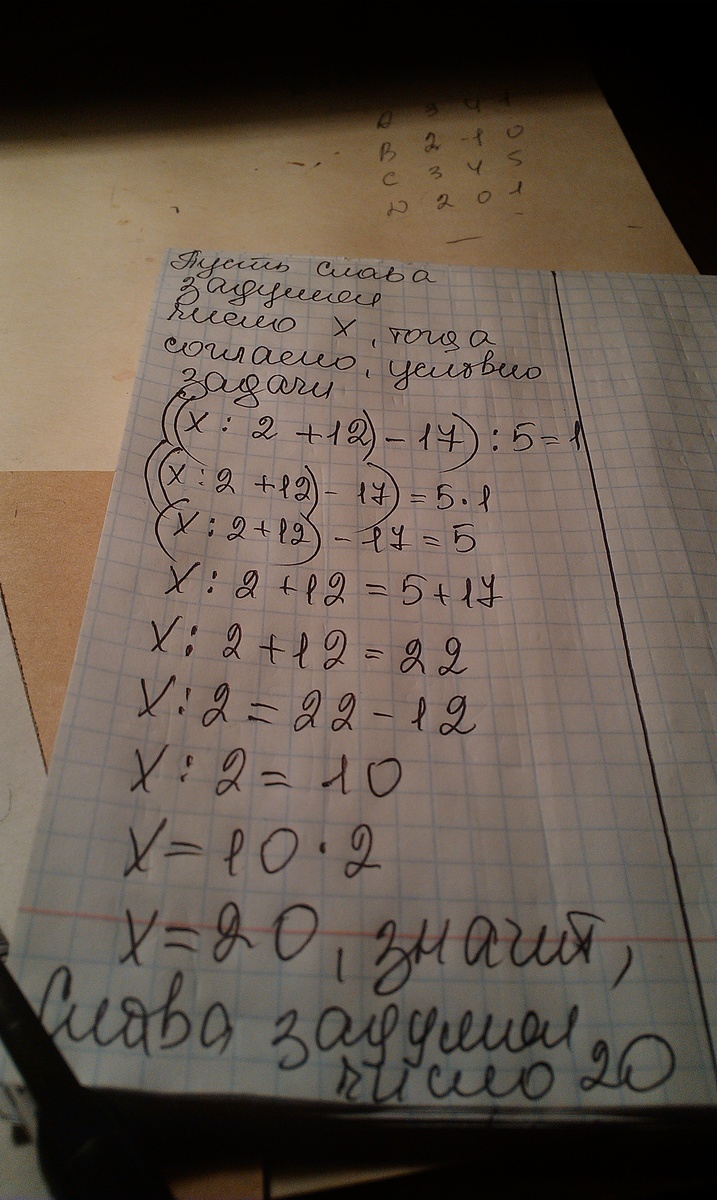 A 3 4 1
B 2 -1 0
C 3 4 5
D 2 0 1
Пусть слава
задумал
число х, тогда
согласно, условию
задачи
((х : 2 +12) - 17) : 5 = 1
((х : 2 +12) - 17) = 5 · 1
(х : 2 + 12) - 17 = 5
х : 2 + 12 = 5 + 17
х : 2 + 12 = 22
х : 2 = 22 - 12
х : 2 = 10
х = 10 · 2
х = 20, значит,
Слава задумал
число 20